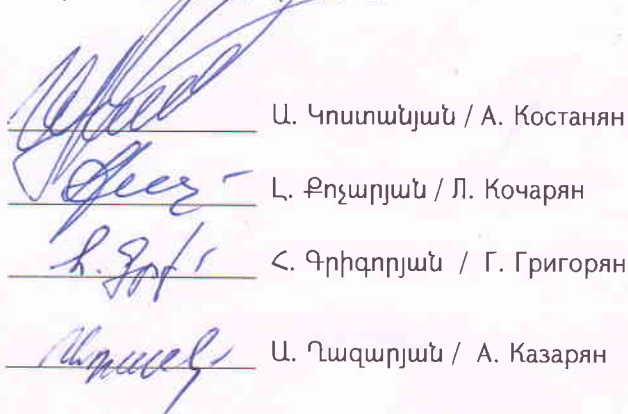 Ա. Կոստանյան / А. Костанян
Լ. Քոչարյան / Л. Кочарян
Հ. Գրիգորյան / Г. Григорян
Ա. Ղազարյան / А. Казарян